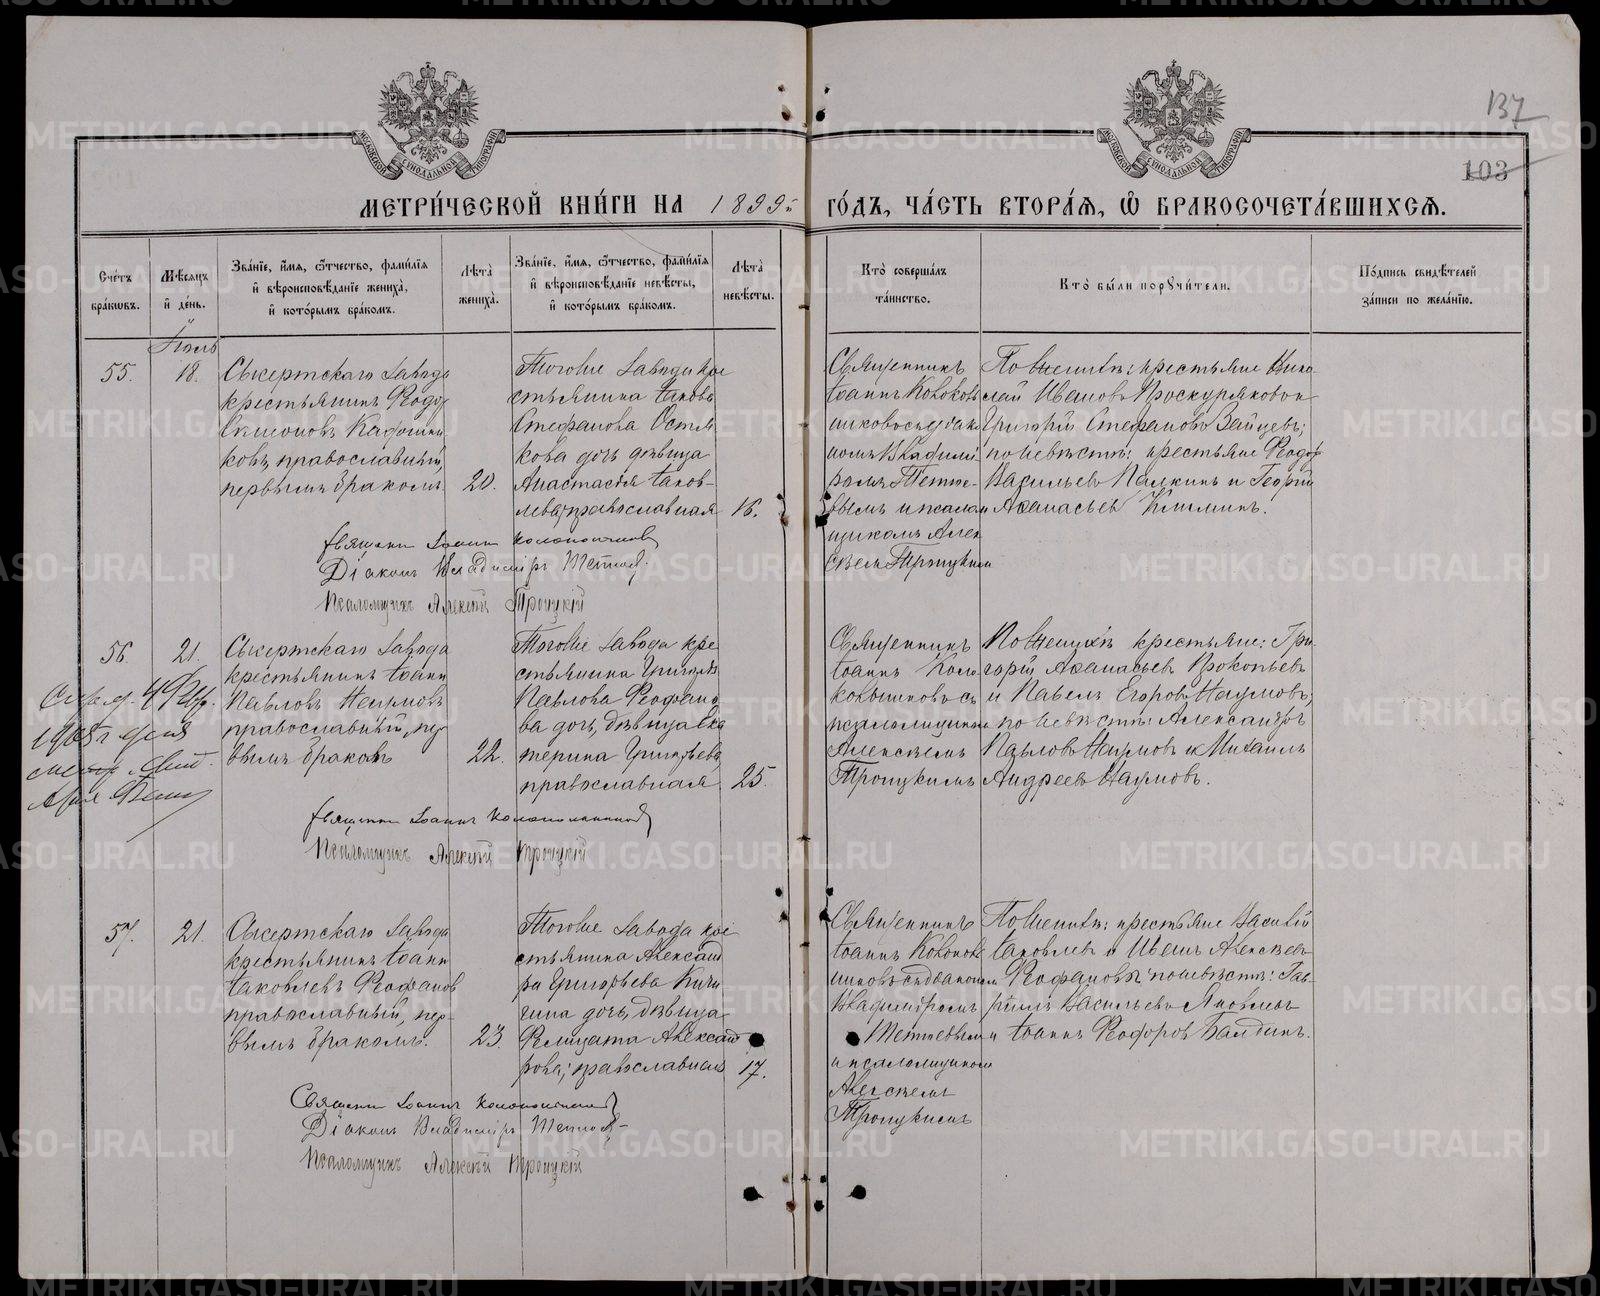 137
103
МЕТРИ́ЧЕСКОЙ КНИ́ГИ НА 1899й ГО́ДЪ, ЧА́СТЬ ВТОРА́Я, Ѡ БРАКОСОЧЕТА́ВШИХСЯ.
Сче́тъ бра́ковъ.
Мѣ́сяцъ и де́нь.
Зва́нїе, и́мя, ѻ́тчество, фами́лїя и вѣроисповѣ́данїе жениха̀, и кото́рымъ бра́комъ.
Лѣ́та жениха̀.
Зва́нїе, и́мя, ѻ́тчество, фами́лїя и вѣроисповѣ́данїе невѣ́сты, и кото́рымъ бра́комъ.
Лѣ́та невѣ́сты.
Кто̀ соверша́лъ та́инство.
Кто̀ бы́ли поручи́тели.
По́дпись свидѣ́телей за́писи по жела́нїю.
Іюль
55.
18.
Сысертскаго завода
крестьянинъ Ѳеодоръ
православный,
первымъ бракомъ.
20.
Тогоже завода кре
стьянина Іакова
Стефанова
кова дочь девица
Анастасія Іаков-
лева, православная
16.
Священникъ
Іоаннъ Колоколь
никовъ съ діако
номъ Владими
ромъ Тетюе-
вымъ и псалом
щикомъ Алек
сѣемъ Троицкимъ
По женихѣ: крестьяне Нико
лай Ивановъ Проскуряковъ и
Григорій Стефановъ Зайцевъ;
по невѣстѣ: крестьяне Ѳеодоръ
Васильевъ Палкинъ и Георгій
Аѳанасьевъ
Священникъ Іоаннъ Колокольниковъ
Діаконъ Владиміръ Тетюевъ
Псаломщикъ Алексѣй Троицкій
56.
21.
Сысертскаго завода
крестьянинъ Іоаннъ
Павловъ Наумовъ
православный, пер
вымъ бракомъ
22.
Тогоже завода кре
стьянина Григорія
Павлова Ѳеофано
ва дочь, девица Ека
терина Григорьева,
православная
25.
Священникъ
Іоаннъ Коло
кольниковъ съ
псаломщикомъ
Алексѣемъ
Троицкимъ
По женихѣ крестьяне: Гри
горій Аѳанасьевъ Прокопьевъ
и Павелъ Егоровъ Наумовъ;
по невѣстѣ: Александръ
Павловъ Наумовъ и Михаилъ
Андреевъ Наумовъ.
Священникъ Іоаннъ Колокольниковъ
Псаломщикъ Алексѣй Троицкій
57.
21.
Сысертскаго завода
крестьянинъ Іоаннъ
Іаковлевъ Ѳеофановъ
православный, пер-
вымъ бракомъ.
23.
Тогоже завода кре
стьянина Александ
ра Григорьева Кичи
гина дочь, девица
Фелицата Александ
рова; православная
17.
Священникъ
Іоаннъ Колоколь
никовъ съ діакономъ
Владиміромъ
Тетюевымъ
и псаломщикомъ
Алексѣемъ
Троицкимъ
По женихѣ: крестьяне Василій
Іаковлевъ и Иванъ Алексѣевъ
Ѳеофановы по невѣстѣ: Гав
ріилъ Васильевъ Яковлевъ
и Іоаннъ Ѳеодоровъ Балдинъ.
Священникъ Іоаннъ Колокольниковъ
Діаконъ Владиміръ Тетюевъ
Псаломщикъ Алексѣй Троицкій
METRIKI.GASO-URAL.RU